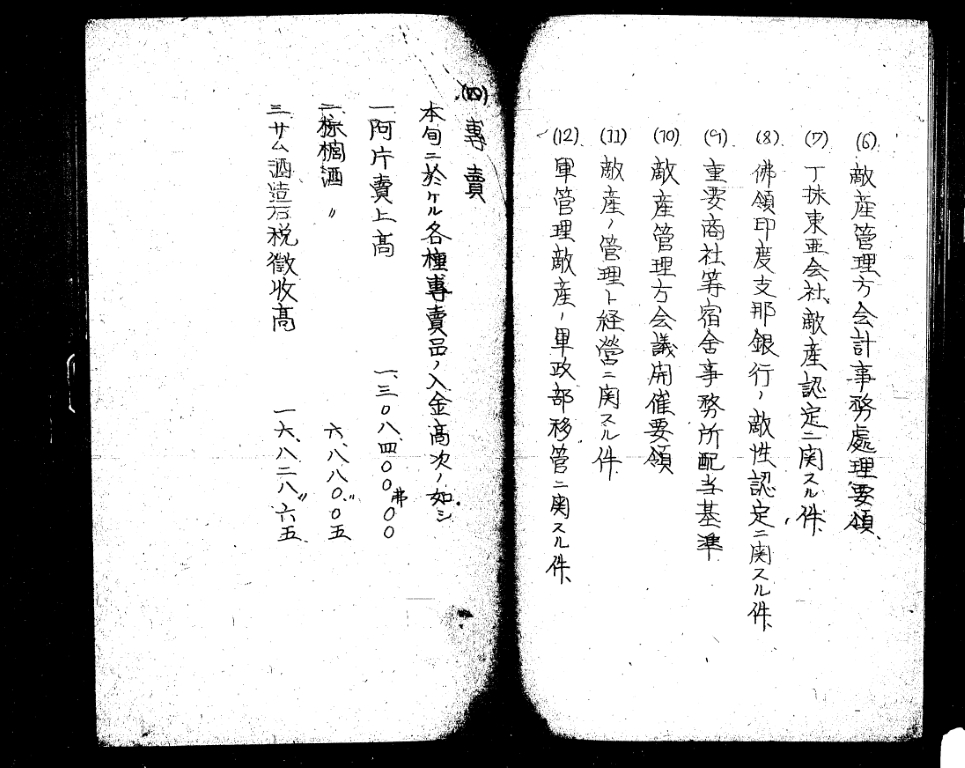 (6) 敵産管理方会計事務處理要領
(7) 丁抹東亜会社敵産認定ニ関スル件
(8) 佛領印度支那銀行ノ敵性認定ニ関スル件
(9) 重要商社等宿舎事務所配当基準
(10) 敵産管理方会議開催要領
(11) 敵産ノ管理ト経営ニ関スル件
(12) 軍管理敵産ノ軍政部移管ニ関スル件
(四) 專賣
本旬ニ於ケル各種專賣品ノ入金高次ノ如シ
一 阿片賣上高 一、三〇八、四〇〇弗〇〇
二 椋櫚酒 〃 六、八八〇〃〇五
三 サム酒造石税徴收高 一六、八二八〃六五